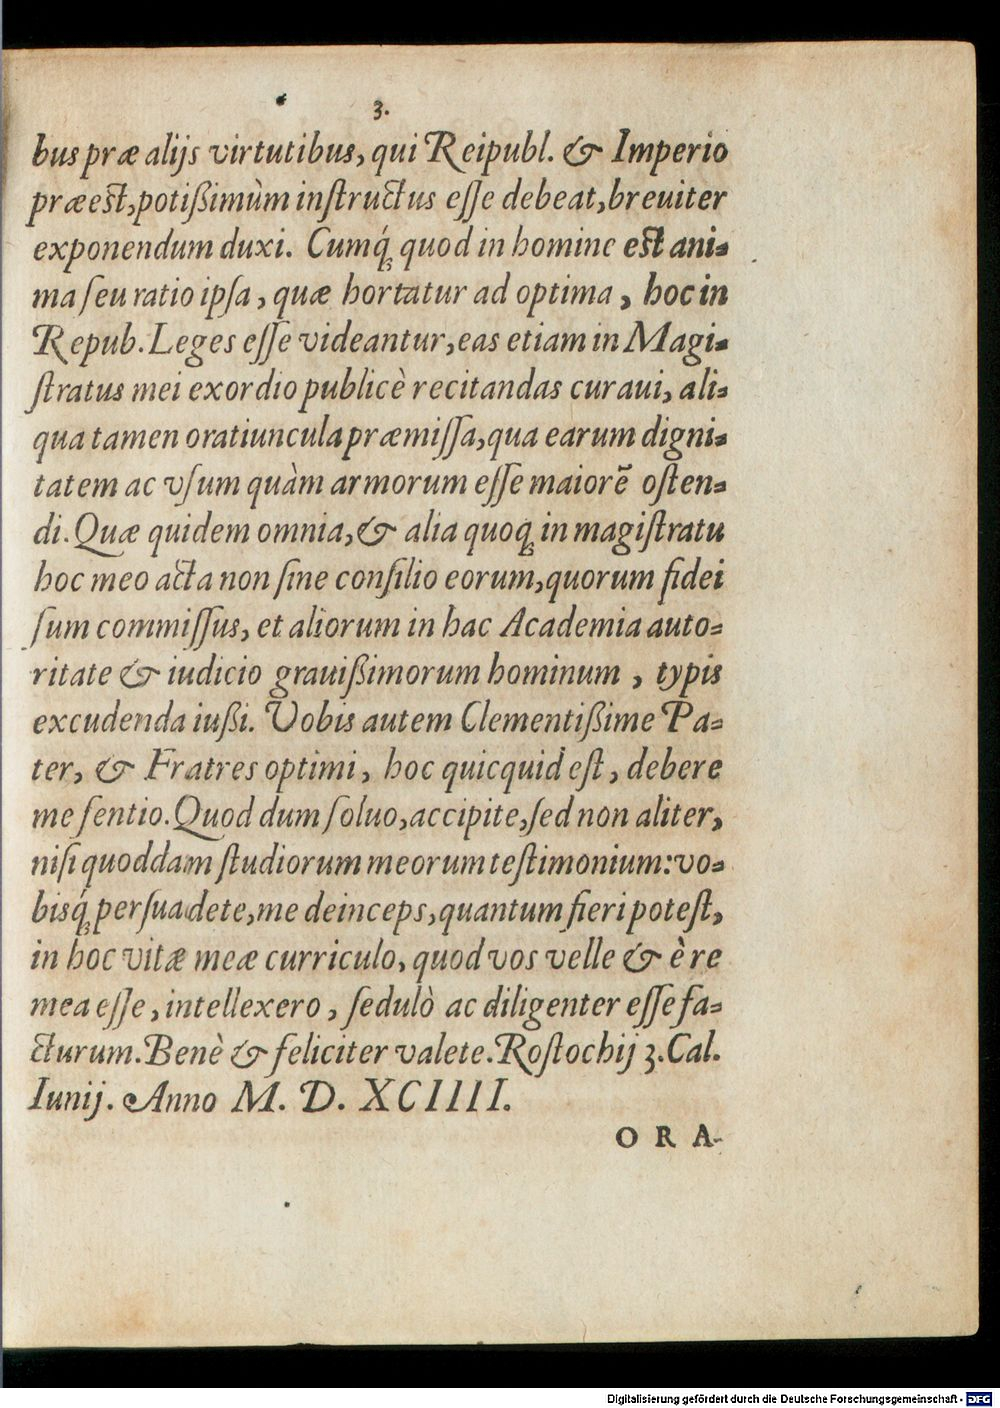 3.
bus præ alijs virtutibus, qui Reipubl. & Imperio
præest, potißimùm inſtructus eſſe debeat, breuiter
exponendum duxi. Cumq́; quod in homine est ani-
ma ſeu ratio ipſa, quæ hortatur ad optima, hoc in
Repub. Leges eſſe videantur, eas etiam in Magi-
ſtratus mei exordio publicè recitandas curaui, ali-
qua tamen oratiuncula præmiſſa, qua earum digni-
tatem ac vſum quàm armorum eſſe maiorē oſten-
di. Quæ quidem omnia, & alia quoq; in magiſtratu
hoc meo acta non ſine conſilio eorum, quorum fidei
ſum commiſſus, et aliorum in hac Academia auto-
ritate & iudicio grauißimorum hominum, typis
excudenda iußi. Vobis autem Clementißime Pa-
ter, & Fratres optimi, hoc quicquid eſt, debere
me ſentio. Quod dum ſoluo, accipite, ſed non aliter,
niſi quoddam ſtudiorum meorum teſtimonium: vo-
bisq́; perſuadete, me deinceps, quantum fieri poteſt,
in hoc vitæ meæ curriculo, quod vos velle & è re
mea eſſe, intellexero, ſedulò ac diligenter eſſe fa-
cturum. Benè & feliciter valete. Roſtochij 3. Cal.
Iunij. Anno M. D. XCIIII.
ORA-
Digitalisierung gefördert durch die Deutsche Forschungsgemeinschaft - DFG